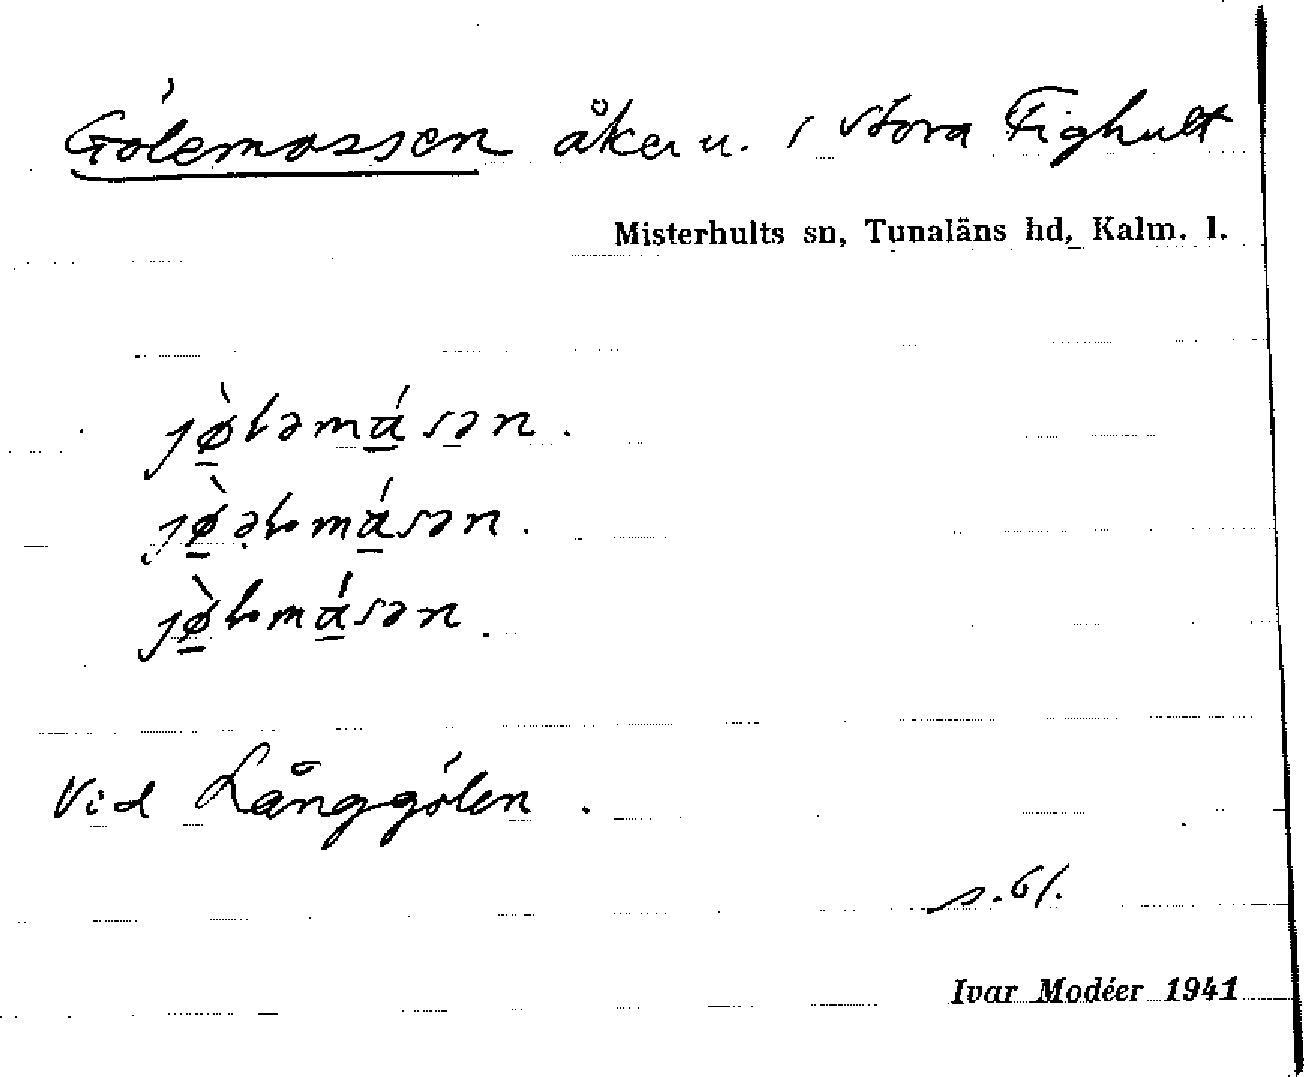 Gólemossen åker u. i Stora Fighult
Misterhults sn, Tunaläns hd, Kalm. l.
jø̀ləmɑ́sən.
jø̀əlmɑ́sən.
jø̀lmɑ́sən.
Vid Långgólen.
s. 61.
Ivar Modéer 1941